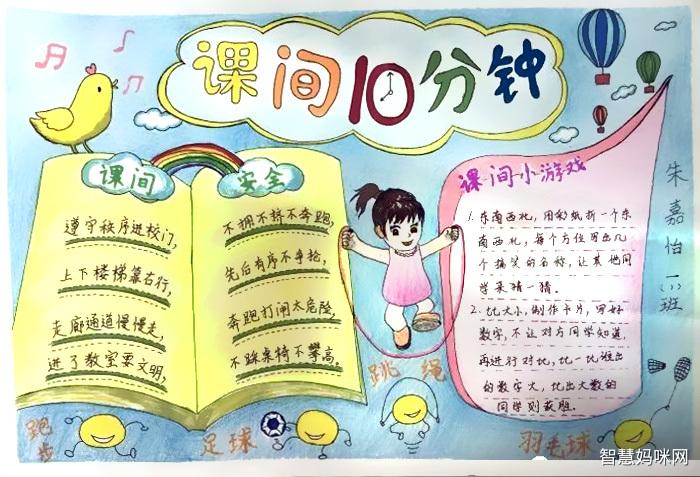 课间10分钟
课间
遵守秩序进校门,
上下楼梯靠右行,
走廊通道慢慢走,
进了教室要文明,
安全
不拥不挤不奔跑,
先后有序不争抢,
奔跑打闹太危险,
不踩桌椅不攀高。
课间小游戏
1.东南西北,用彩纸折一个东
南西北,每个方位写出几
个搞笑的名称,让其他同
学来猜一猜。
2.比大小,制作卡片,写好
数字,不让对方同学知道,
再进行对比,比一比谁出
的数字大,比出大数的
同学则获胜。
朱嘉怡
一(1)班
跳绳
跑步
足球
羽毛球
智慧妈咪网